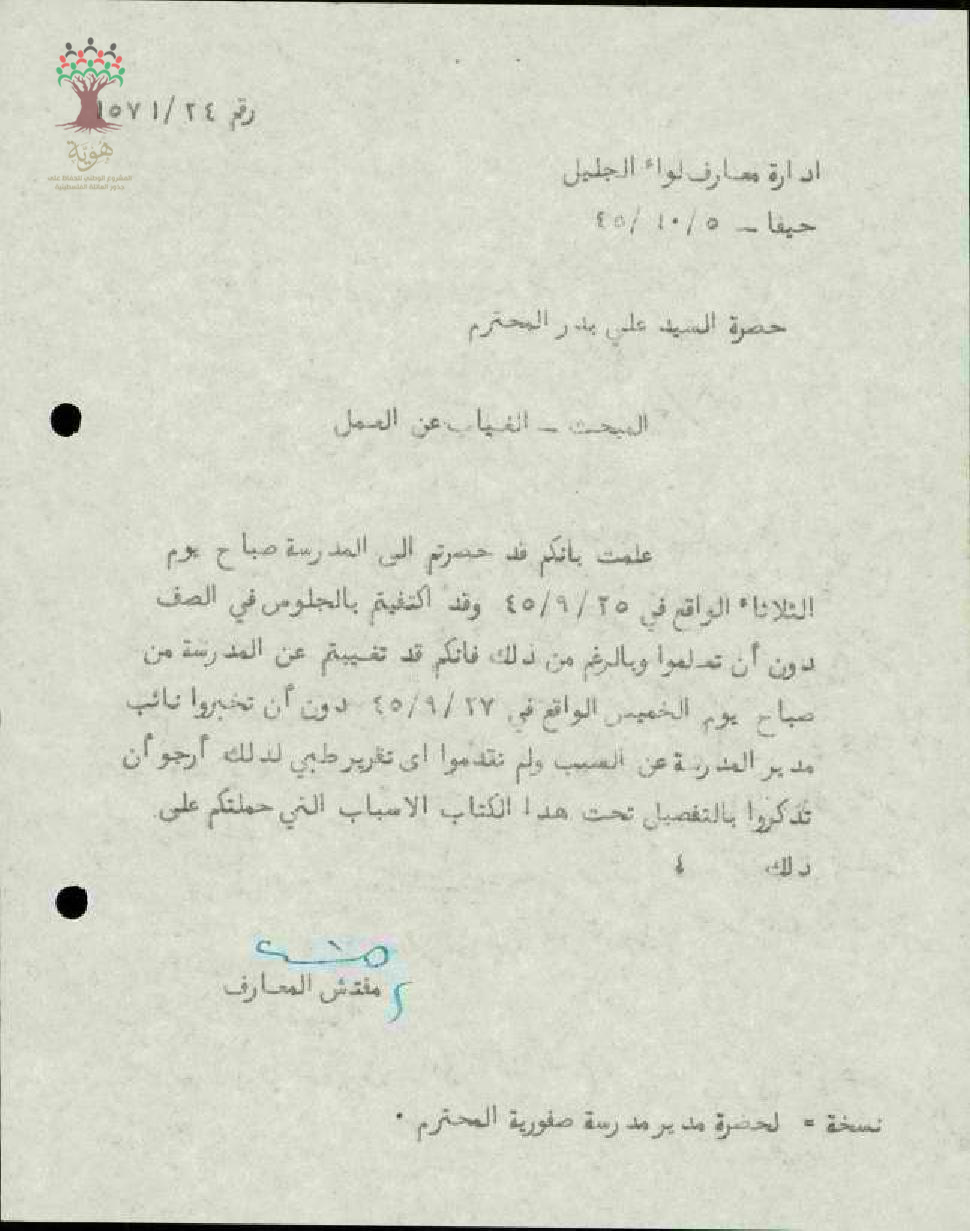 هوية
المشروع الوطني للحفاظ على
جذور العائلة الفلسطينية
رقم ٢٤/ ١٥٧١
ادارة معارف لواء الجليل
حيفا – ٥/ ١٠/ ٤٥
حضرة السيد علي بدر المحترم
المبحث – الغياب عن العمل
علمت بانكم قد حضرتم الى المدرسة صباح يوم
الثلاثاء الواقع في ٢٥/ ٩/ ٤٥ وقد اكتفيتم بالجلوس في الصف
دون أن تعلموا وبالرغم من ذلك فانكم قد تغيبتم عن المدرسة من
صباح يوم الخميس الواقع في ٢٧/ ٩/ ٤٥ دون أن تخبروا نائب
مدير المدرسة عن السبب ولم تقدموا اى تقرير طبي لذلك أرجو أن
تذكروا بالتفصيل تحت هذا الكتاب الاسباب التي حملتكم على
ذلك
مفتش المعارف
نسخة = لحضرة مدير مدرسة صفورية المحترم .